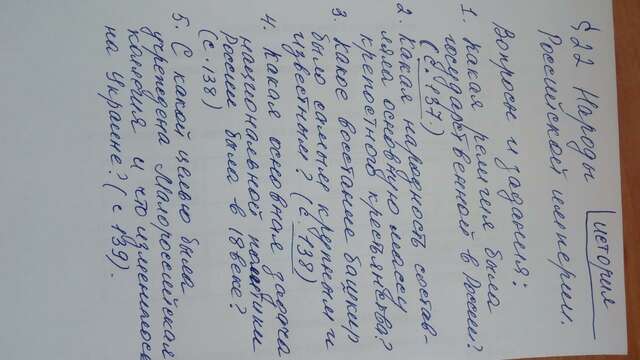 история
§ 22 Народы
Российской империи.
Вопросы и задания:
1. Какая религия была
государственной в России?
(с. 137.)
2. Какая народность состав-
ляла основную массу
крепостного крестьянства?
3. Какое восстание башкир
было самым крупным и
известным? (с. 138)
4. Какая основная задача
национальной политики
России была в 18 веке?
(с. 138)
5. С какой целью была
учреждена Малороссийская
коллегия и что изменилось
на Украине? (с 139).